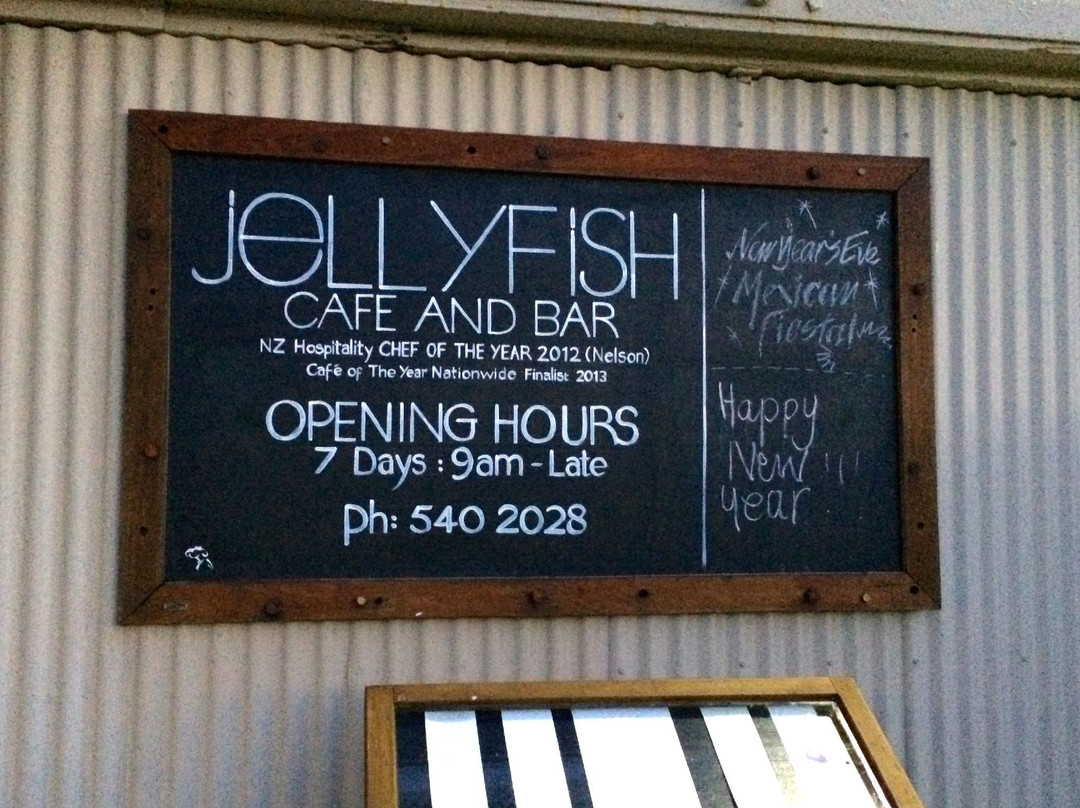 jeLLYFiSH
CAFE AND BAR
NZ Hospitality CHEF OF THE YEAR 2012 (Nelson)
Café of The Year Nationwide Finalist 2013
OPENING HOURS
7 Days : 9am - Late
Ph: 540 2028
New Year's Eve
Mexican
Happy
New
year